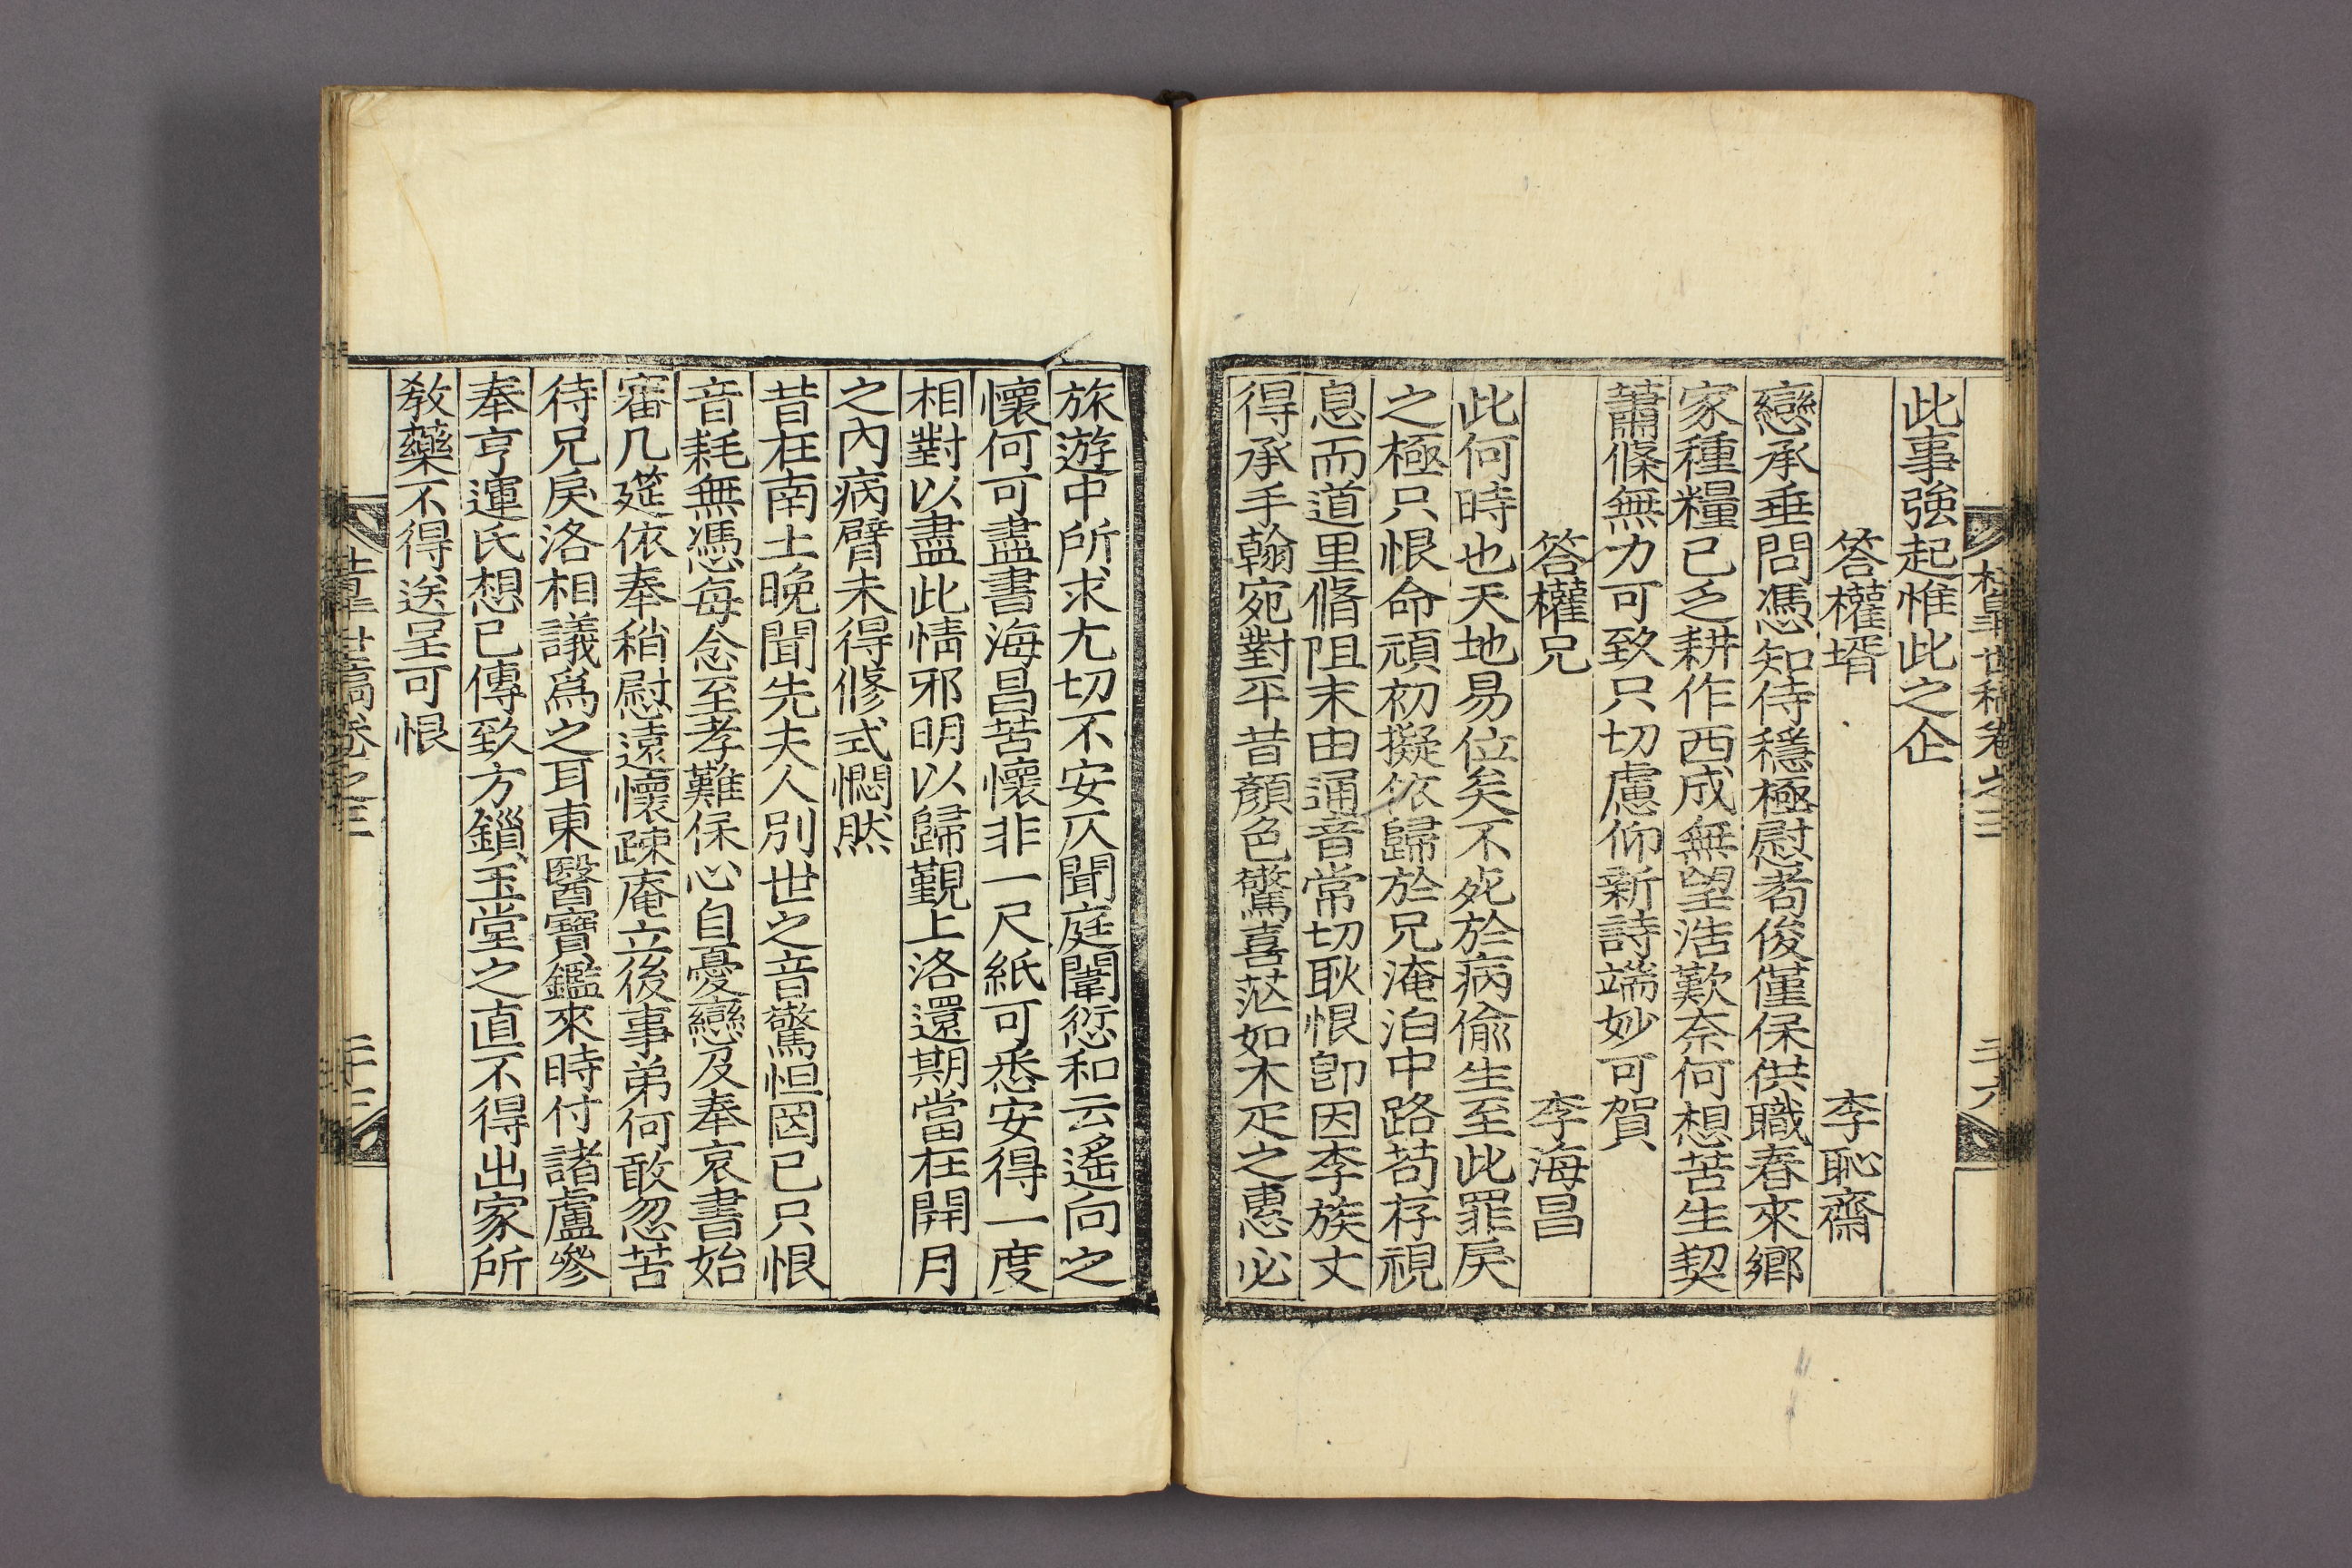 此事強起惟此之企
答權壻 李恥齋
戀承垂問憑知侍穩極慰耇俊僅保供職春來鄕
家種糧已乏耕作西成無望浩歎奈何想苦生契
蕭條無力可致只切慮仰新詩端妙可賀
答權兄 李海昌
此何時也天地易位矣不死於病偸生至此罪戾
之極只恨命頑初擬依歸於兄淹泊中路苟存視
息而道里脩阻末由通音常切耿恨卽因李族丈
得承手翰宛對平昔顏色驚喜茫如木疋之惠必
旅遊中所求尤切不安仄聞庭闈愆和云遙向之
懷何可盡書海昌苦懷非一尺紙可悉安得一度
相對以盡此情邪明以歸覲上洛還期當在開月
之內病臂未得修式憫然
昔在南土晩聞先夫人別世之音驚怛罔已只恨
音耗無憑每念至孝難保心自憂戀及奉哀書始
審几筵依奉稍慰遠懷疎庵立後事弟何敢忽苦
待兄戾洛相議爲之耳東醫寶鑑來時付諸盧參
奉亨運氏想已傳致方鎖玉堂之直不得出家所
敎藥不得送呈可恨